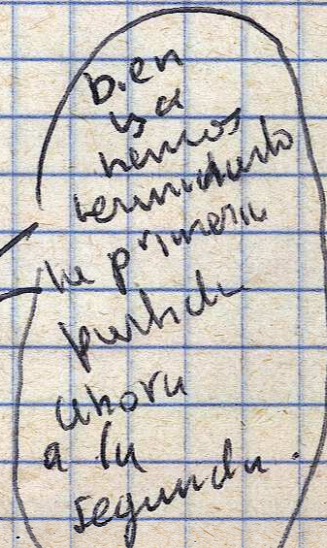 bien
ya
hemos
terminado
la primera
partida
ahora
a la
segunda.